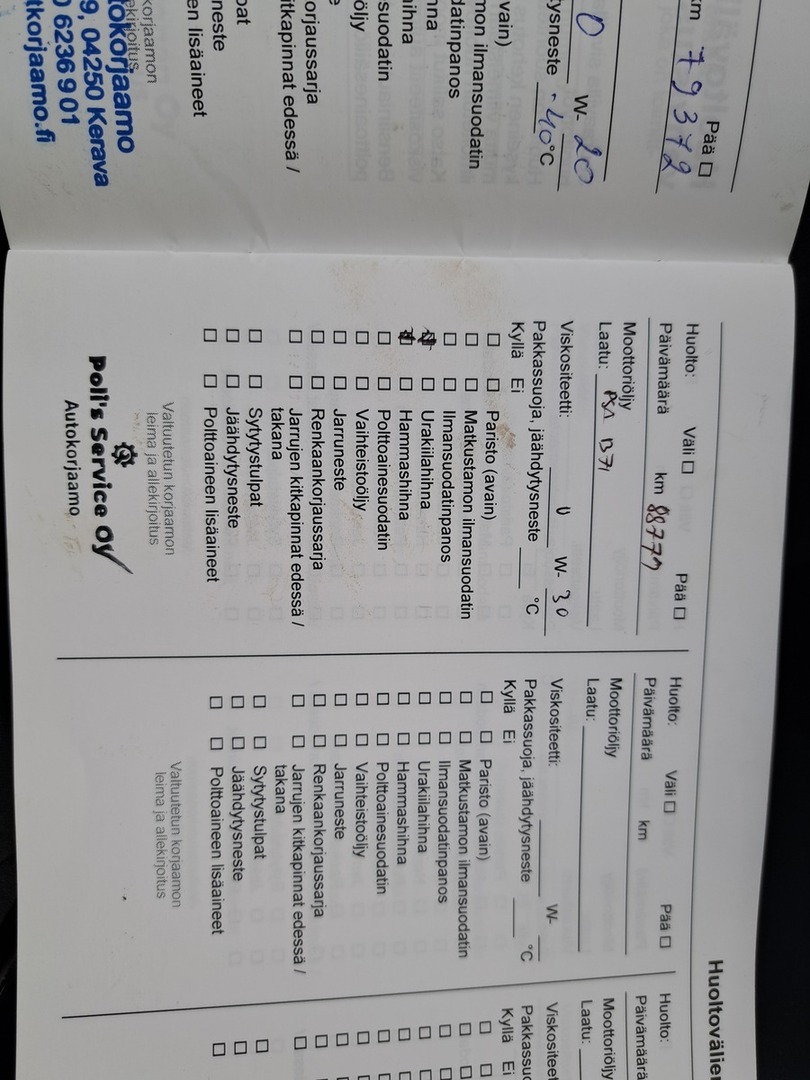 km 79372
Pää ☐
0 W- 20
ysneste -40°C
vain)
mon ilmansuodatin
datinpanos
nna
ihna
suodatin
öljy
e
orjaussarja
itkapinnat edessä /
pat
neste
en lisäaineet
korjaamon
ekirjoitus
tokorjaamo
9, 04250 Kerava
0 6236 9 01
tkorjaamo.fi
Huoltovälien
Huolto: Väli ☐ Pää ☐
Päivämäärä km 88777
Moottoriöljy
Laatu: PSA B71
Viskositeetti: 0 W- 30
Pakkassuoja, jäähdytysneste °C
Kyllä Ei
☐ ☐ Paristo (avain)
☐ ☐ Matkustamon ilmansuodatin
☐ ☐ Ilmansuodatinpanos
☒ ☐ Urakiilahihna
☒ ☐ Hammashihna
☐ ☐ Polttoainesuodatin
☐ ☐ Vaihteistoöljy
☐ ☐ Jarruneste
☐ ☐ Renkaankorjaussarja
☐ ☐ Jarrujen kitkapinnat edessä /
takana
☐ ☐ Sytytystulpat
☐ ☐ Jäähdytysneste
☐ ☐ Polttoaineen lisäaineet
Valtuutetun korjaamon
leima ja allekirjoitus
Poli's Service Oy
Autokorjaamo
Huolto: Väli ☐ Pää ☐
Päivämäärä km
Moottoriöljy
Laatu:
Viskositeetti: W-
Pakkassuoja, jäähdytysneste °C
Kyllä Ei
☐ ☐ Paristo (avain)
☐ ☐ Matkustamon ilmansuodatin
☐ ☐ Ilmansuodatinpanos
☐ ☐ Urakiilahihna
☐ ☐ Hammashihna
☐ ☐ Polttoainesuodatin
☐ ☐ Vaihteistoöljy
☐ ☐ Jarruneste
☐ ☐ Renkaankorjaussarja
☐ ☐ Jarrujen kitkapinnat edessä /
takana
☐ ☐ Sytytystulpat
☐ ☐ Jäähdytysneste
☐ ☐ Polttoaineen lisäaineet
Valtuutetun korjaamon
leima ja allekirjoitus
Huolto:
Päivämäärä
Moottoriöljy
Laatu:
Viskositeet
Pakkassuo
Kyllä Ei